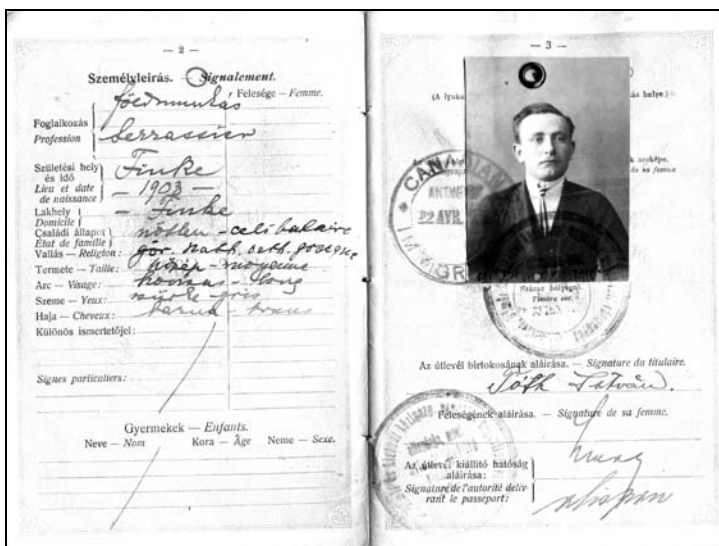 — 2 —
Személyleirás. — Signalement.
Felesége — Femme.
földmunkás
Foglalkozás
Profession
Születési hely
és idő
Lieu et date
de naissance
Finke
— 1903 —
Lakhely
Domicile
— Finke
Családi állapot
État de famille
nőtlen - celibataire
Vallás — Religion: gör. kath. cath. grecque
Termete — Taille: közép - moyenne
Arc — Visage: hosszas - long
Szeme — Yeux: szürke - gris
Haja — Cheveux: barna - bruns
Különös ismertetőjel:
Signes particuliers:
Gyermekek — Enfants.
Neve — Nom Kora — Âge Neme — Sexe.
— 3 —
(A lyuka ás helye.)
k arcképe.
de sa femme
CANADIAN
ANTWE
22 AVR.
IMMIGR
Száraz bélyegző.
Timbre sec.
Az útlevél birtokosának aláírása. — Signature du titulaire.
Tóth István.
Feleségének aláírása. — Signature de sa femme.
Az útlevél kiállító hatóság
aláírása:
Signature de l'autorité déliv-
rant le passeport:
alispán